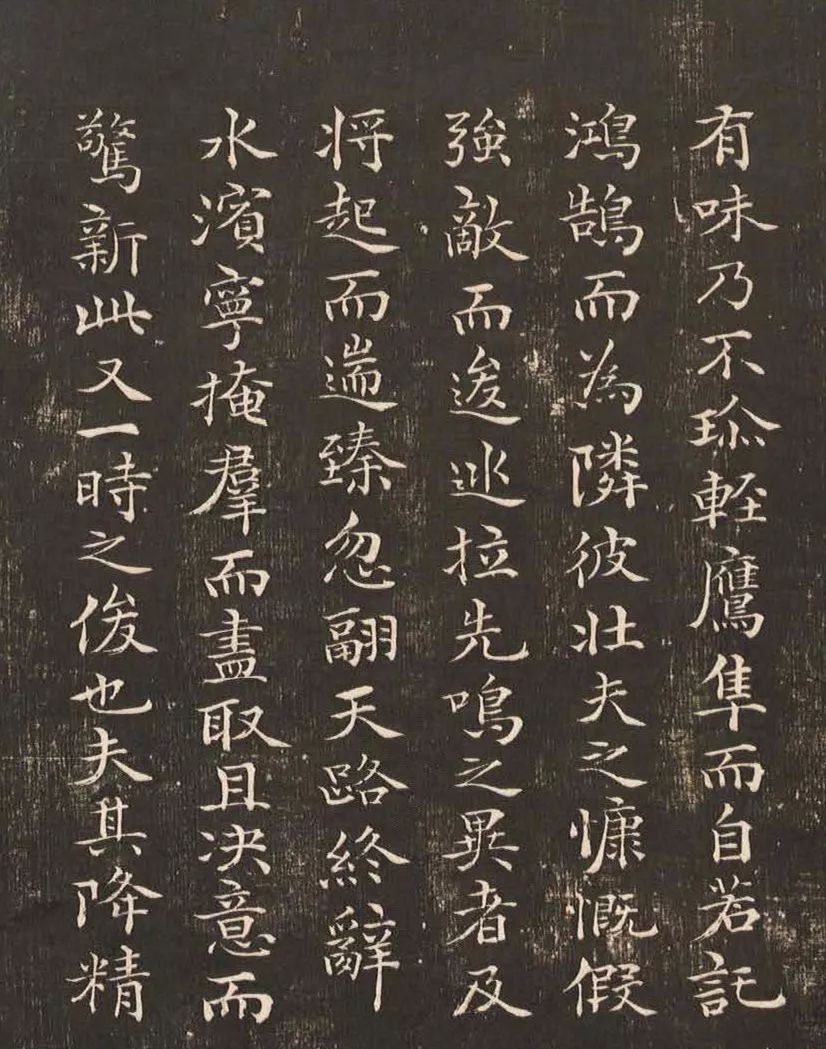 有味乃不珎輕鷹隼而自若託
鴻鵠而為隣彼壮夫之慷慨假
強敵而逡巡拉先鳴之異者及
将起而遄臻忽翩天路終辭
水濱寧掩羣而盡取且决意而
驚新此又一時之俊也夫其降精